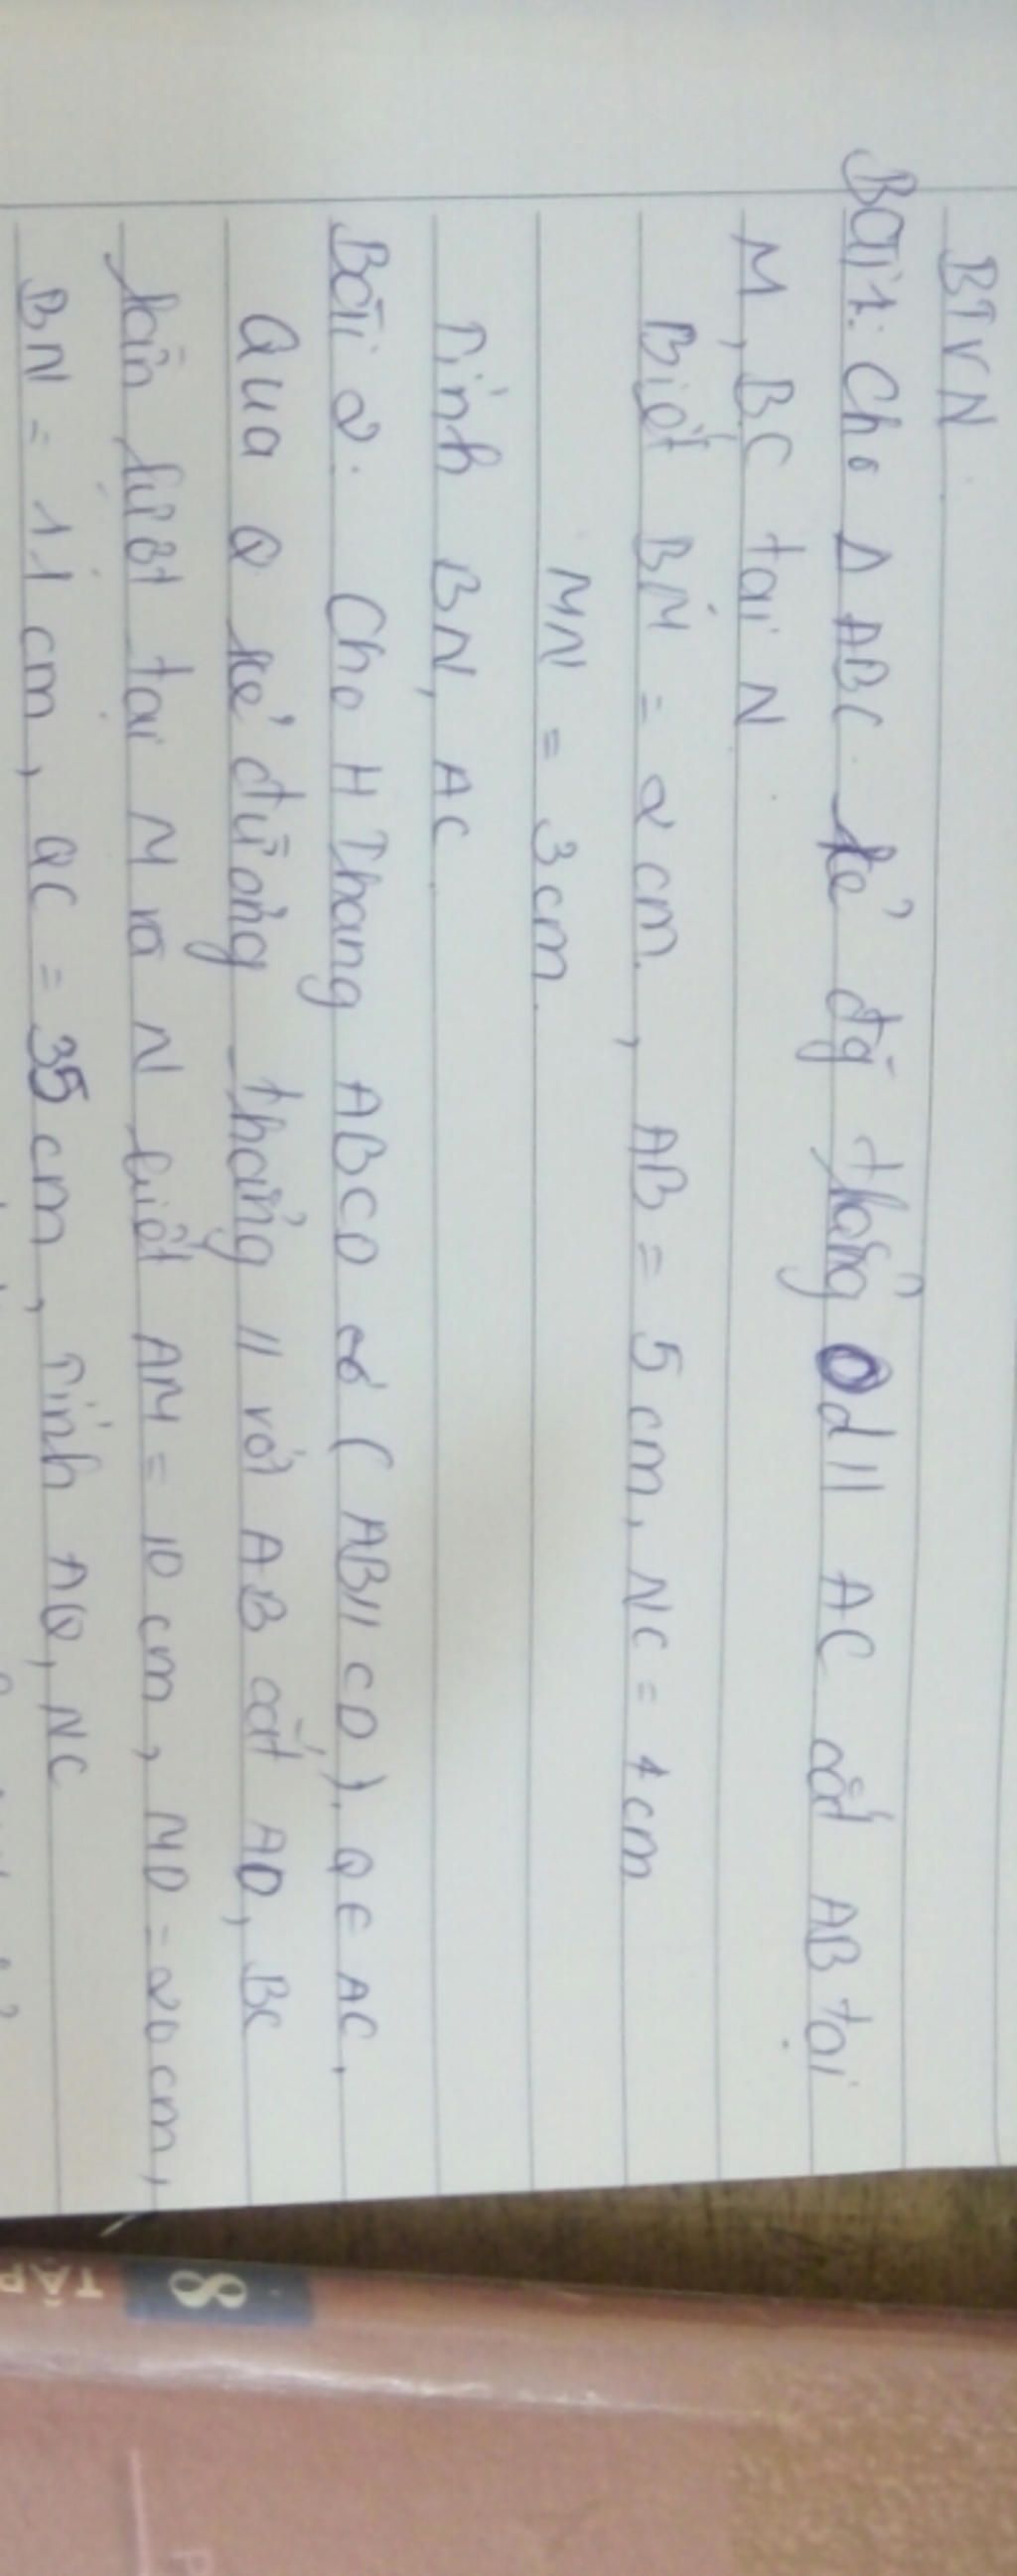 BTVN
Bài 1: Cho Δ ABC kẻ đg thẳng d // AC cắt AB tại
M, BC tại N
Biết BM = 2 cm, AB = 5 cm, NC = 4 cm
MN = 3 cm.
Tính BN, AC
Bài 2: Cho H Thang ABCD có (AB // CD). Q ∈ AC,
Qua Q kẻ đường thẳng // với AB cắt AD, BC
lần lượt tại M và N biết AM = 10 cm, MD = 20 cm,
BN = 11 cm, QC = 35 cm, Tính AQ, NC
8
TẬP